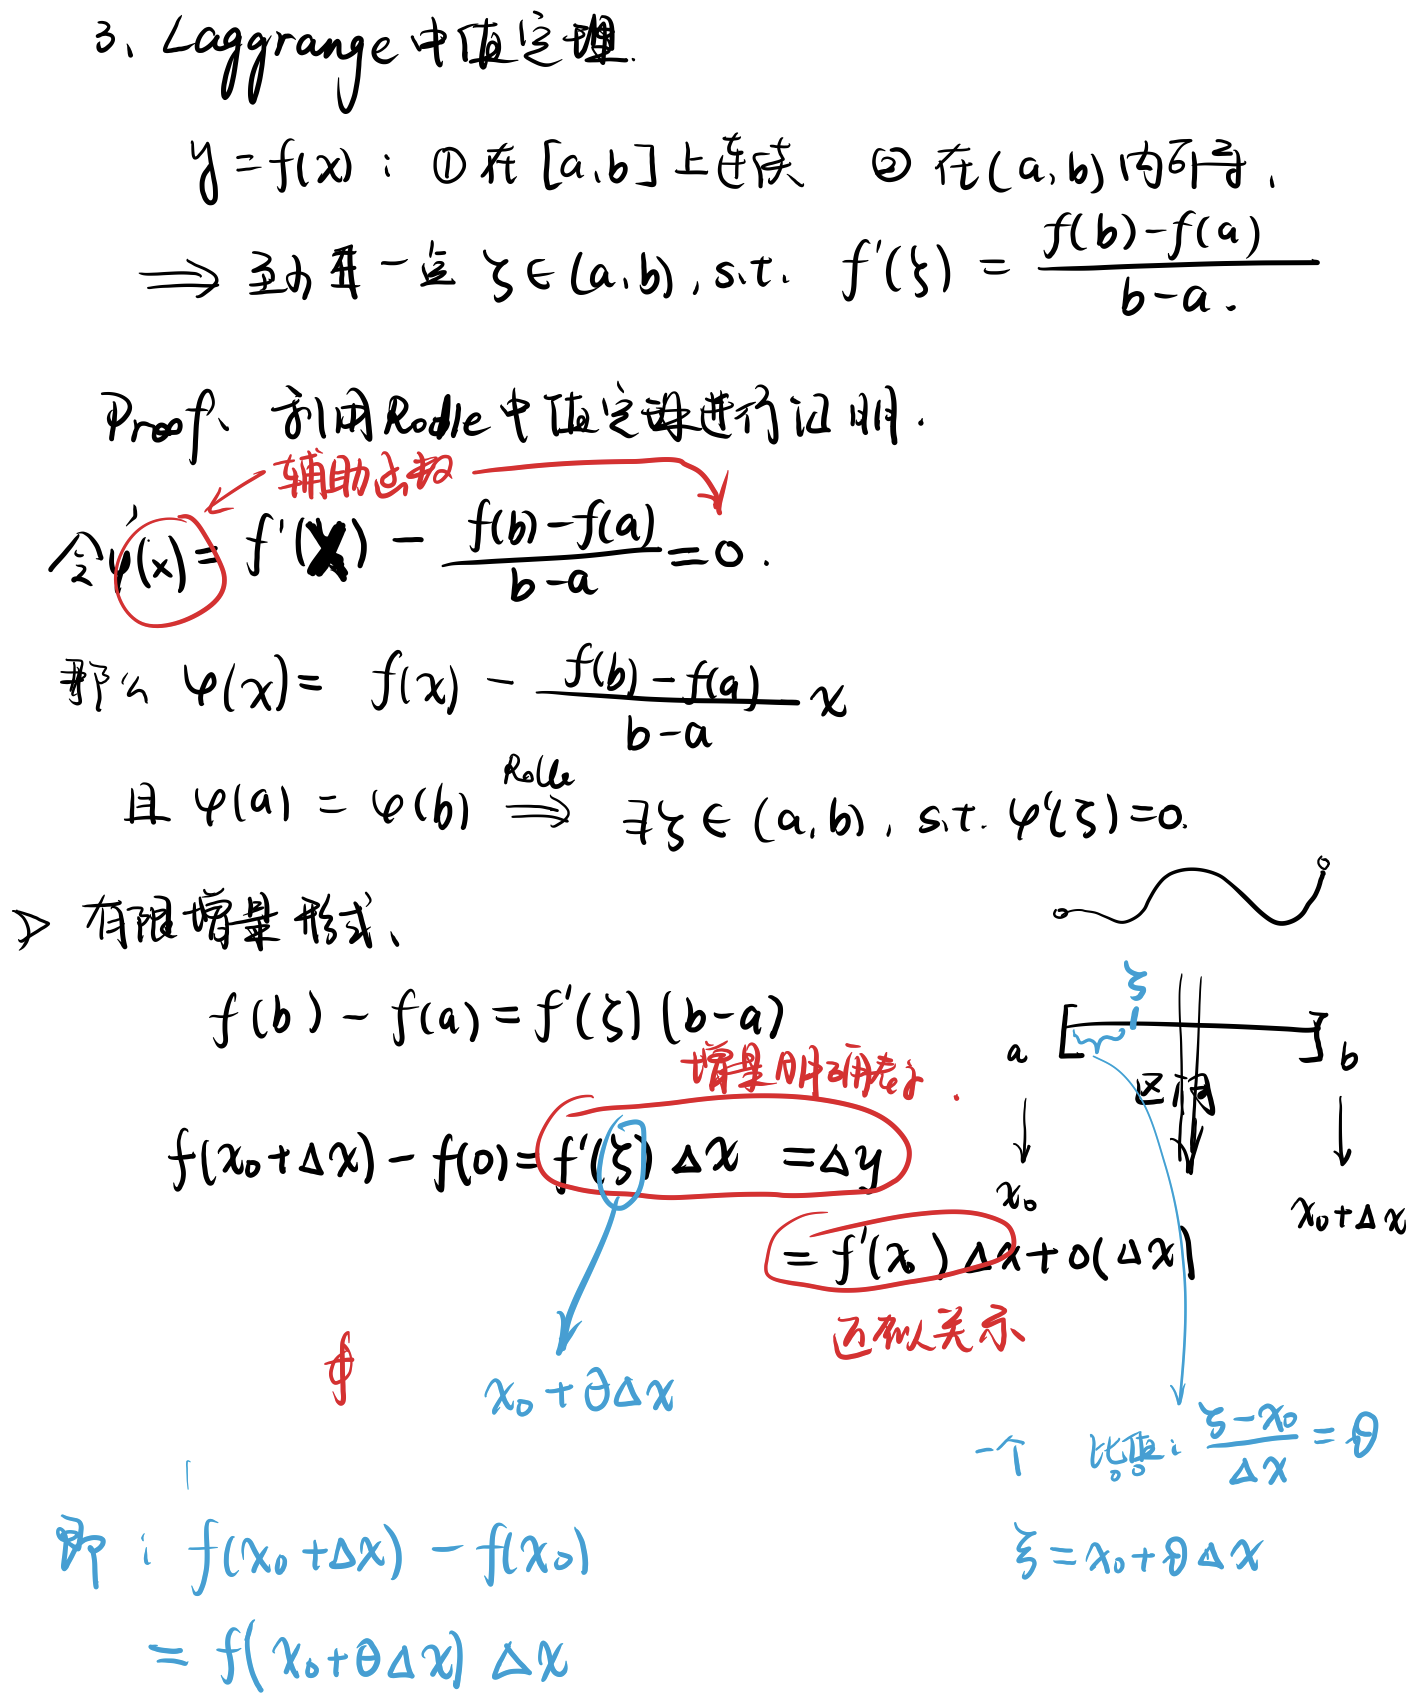 3、Laggrange中值定理.
y = f(x)：① 在 [a,b] 上连续 ② 在(a,b)内可导.
⟹ 至少有一点 ξ ∈ (a,b), s.t. f'(ξ) = \frac{f(b)-f(a)}{b-a}.
Proof、利用Rolle中值定理进行证明.
辅助函数
令 φ'(x) = f'(x) - \frac{f(b)-f(a)}{b-a} = 0.
那么 φ(x) = f(x) - \frac{f(b)-f(a)}{b-a} x
且 φ(a) = φ(b) \xRightarrow{Rolle} ∃ξ ∈ (a,b), s.t. φ'(ξ)=0.
> 有限增量形式、
f(b) - f(a) = f'(ξ)(b-a)
ξ
a [ ] b
区间
增量明确表示.
f(x₀+Δx) - f(0) = f'(ξ) Δx = Δy
x₀ x₀+Δx
= f'(x₀) Δx + o(Δx)
近似关示
x₀ + θΔx
一个 比值: \frac{ξ-x₀}{Δx} = θ
ξ = x₀ + θΔx
即: f(x₀+Δx) - f(x₀)
= f(x₀+θΔx) Δx